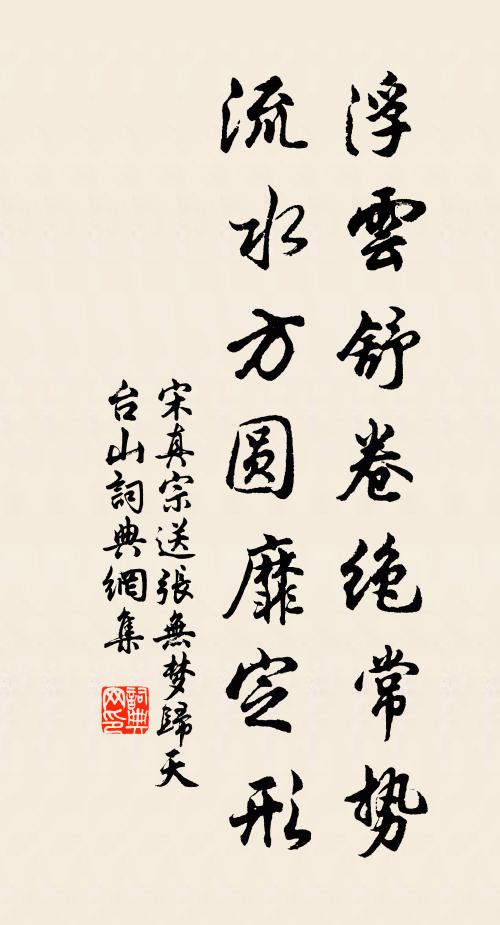 浮雲舒卷絶常勢
流水方圓靡定形
宋真宗送張無梦歸天
台山詞典網集
詞典网印